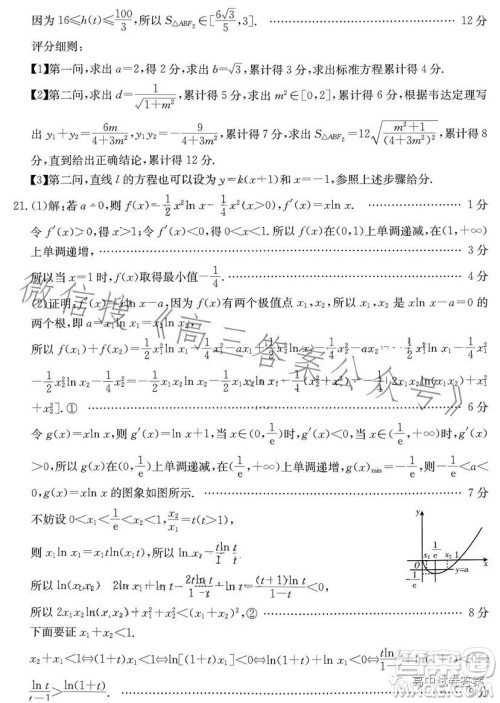 因为 16≤h(t)≤100/3,所以 S△ABF₂∈[6√3/5,3]. ……………… 12 分
评分细则:
【1】第一问,求出 a=2,得 2 分,求出 b=√3,累计得 3 分,求出标准方程累计得 4 分.
【2】第二问,求出 d=1/√(1+m²),累计得 5 分,求出 m²∈[0,2],累计得 6 分,根据韦达定理写
出 y₁+y₂=6m/(4+3m²),y₁y₂=-9/(4+3m²),累计得 7 分,求出 S△ABF₂=12√((m²+1)/(4+3m²)²),累计得 8
分,直到给出正确结论,累计得 12 分.
【3】第二问,直线 l 的方程也可以设为 y=k(x+1)和 x=-1,参照上述步骤给分.
21.(1)解:若 a=0,则 f(x)=1/2x²ln x-1/4x²(x>0),f′(x)=xln x. ……………… 1 分
令 f′(x)>0,得 x>1;令 f′(x)<0,得 0<x<1.所以 f(x)在(0,1)上单调递减,在(1,+∞)
上单调递增, ……………… 3 分
所以当 x=1 时,f(x)取得最小值-1/4. ……………… 4 分
(2)证明:f′(x)=xln x-a,因为 f(x)有两个极值点 x₁,x₂,所以 x₁,x₂ 是 xln x-a=0 的
两个根,即 a=x₁ln x₁=x₂ln x₂,
所以 f(x₁)+f(x₂)=1/2x₁²ln x₁-1/4x₁²-ax₁+1/2x₂²ln x₂-1/4x₂²-ax₂=1/2x₁²ln x₁-1/4x₁²
-1/2x₂²ln x₂-1/4x₂²=-1/2x₁x₂ln x₂-1/2x₁x₂ln x₁-1/4(x₁²+x₂²)=-1/4[2x₁x₂ln(x₁x₂)+x₁²
+x₂²].① ……………… 6 分
令 g(x)=xln x,则 g′(x)=ln x+1,当 x∈(0,1/e)时,g′(x)<0,当 x∈(1/e,+∞)时,g′(x)
>0,所以 g(x)在(0,1/e)上单调递减,在(1/e,+∞)上单调递增,g(x)min=-1/e,则-1/e<a<
0,g(x)=xln x 的图象如图所示. ……………… 7 分
不妨设 0<x₁<1/e<x₂<1,x₂/x₁=t(t>1),
则 x₁ln x₁=tx₁ln(x₁t),所以 ln x₁=tln t/1-t
所以 ln(x₁x₂) 2ln x₁+ln t=2tln t/1-t+ln t=(t+1)ln t/1-t<0,
所以 2x₁x₂ln(x₁x₂)+x₁²+x₂²<(x₁+x₂)²,② ……………… 8 分
下面要证 x₁+x₂<1.
x₂+x₁<1⇔(1+t)x₁<1⇔ln[(1+t)x₁]<0⇔ln(1+t)+ln x₁<0⇔
ln t/t-1>ln(1+t). ……………… 9 分
y
1/e
O
x₁
x₂
1
x
-1/e
y=a
微信搜《高三答案公众号》
高中试卷答案